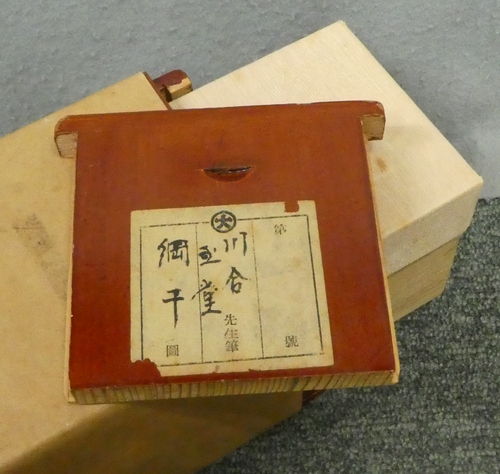 大
第 號
川合
玉堂
先生筆
網干 圖